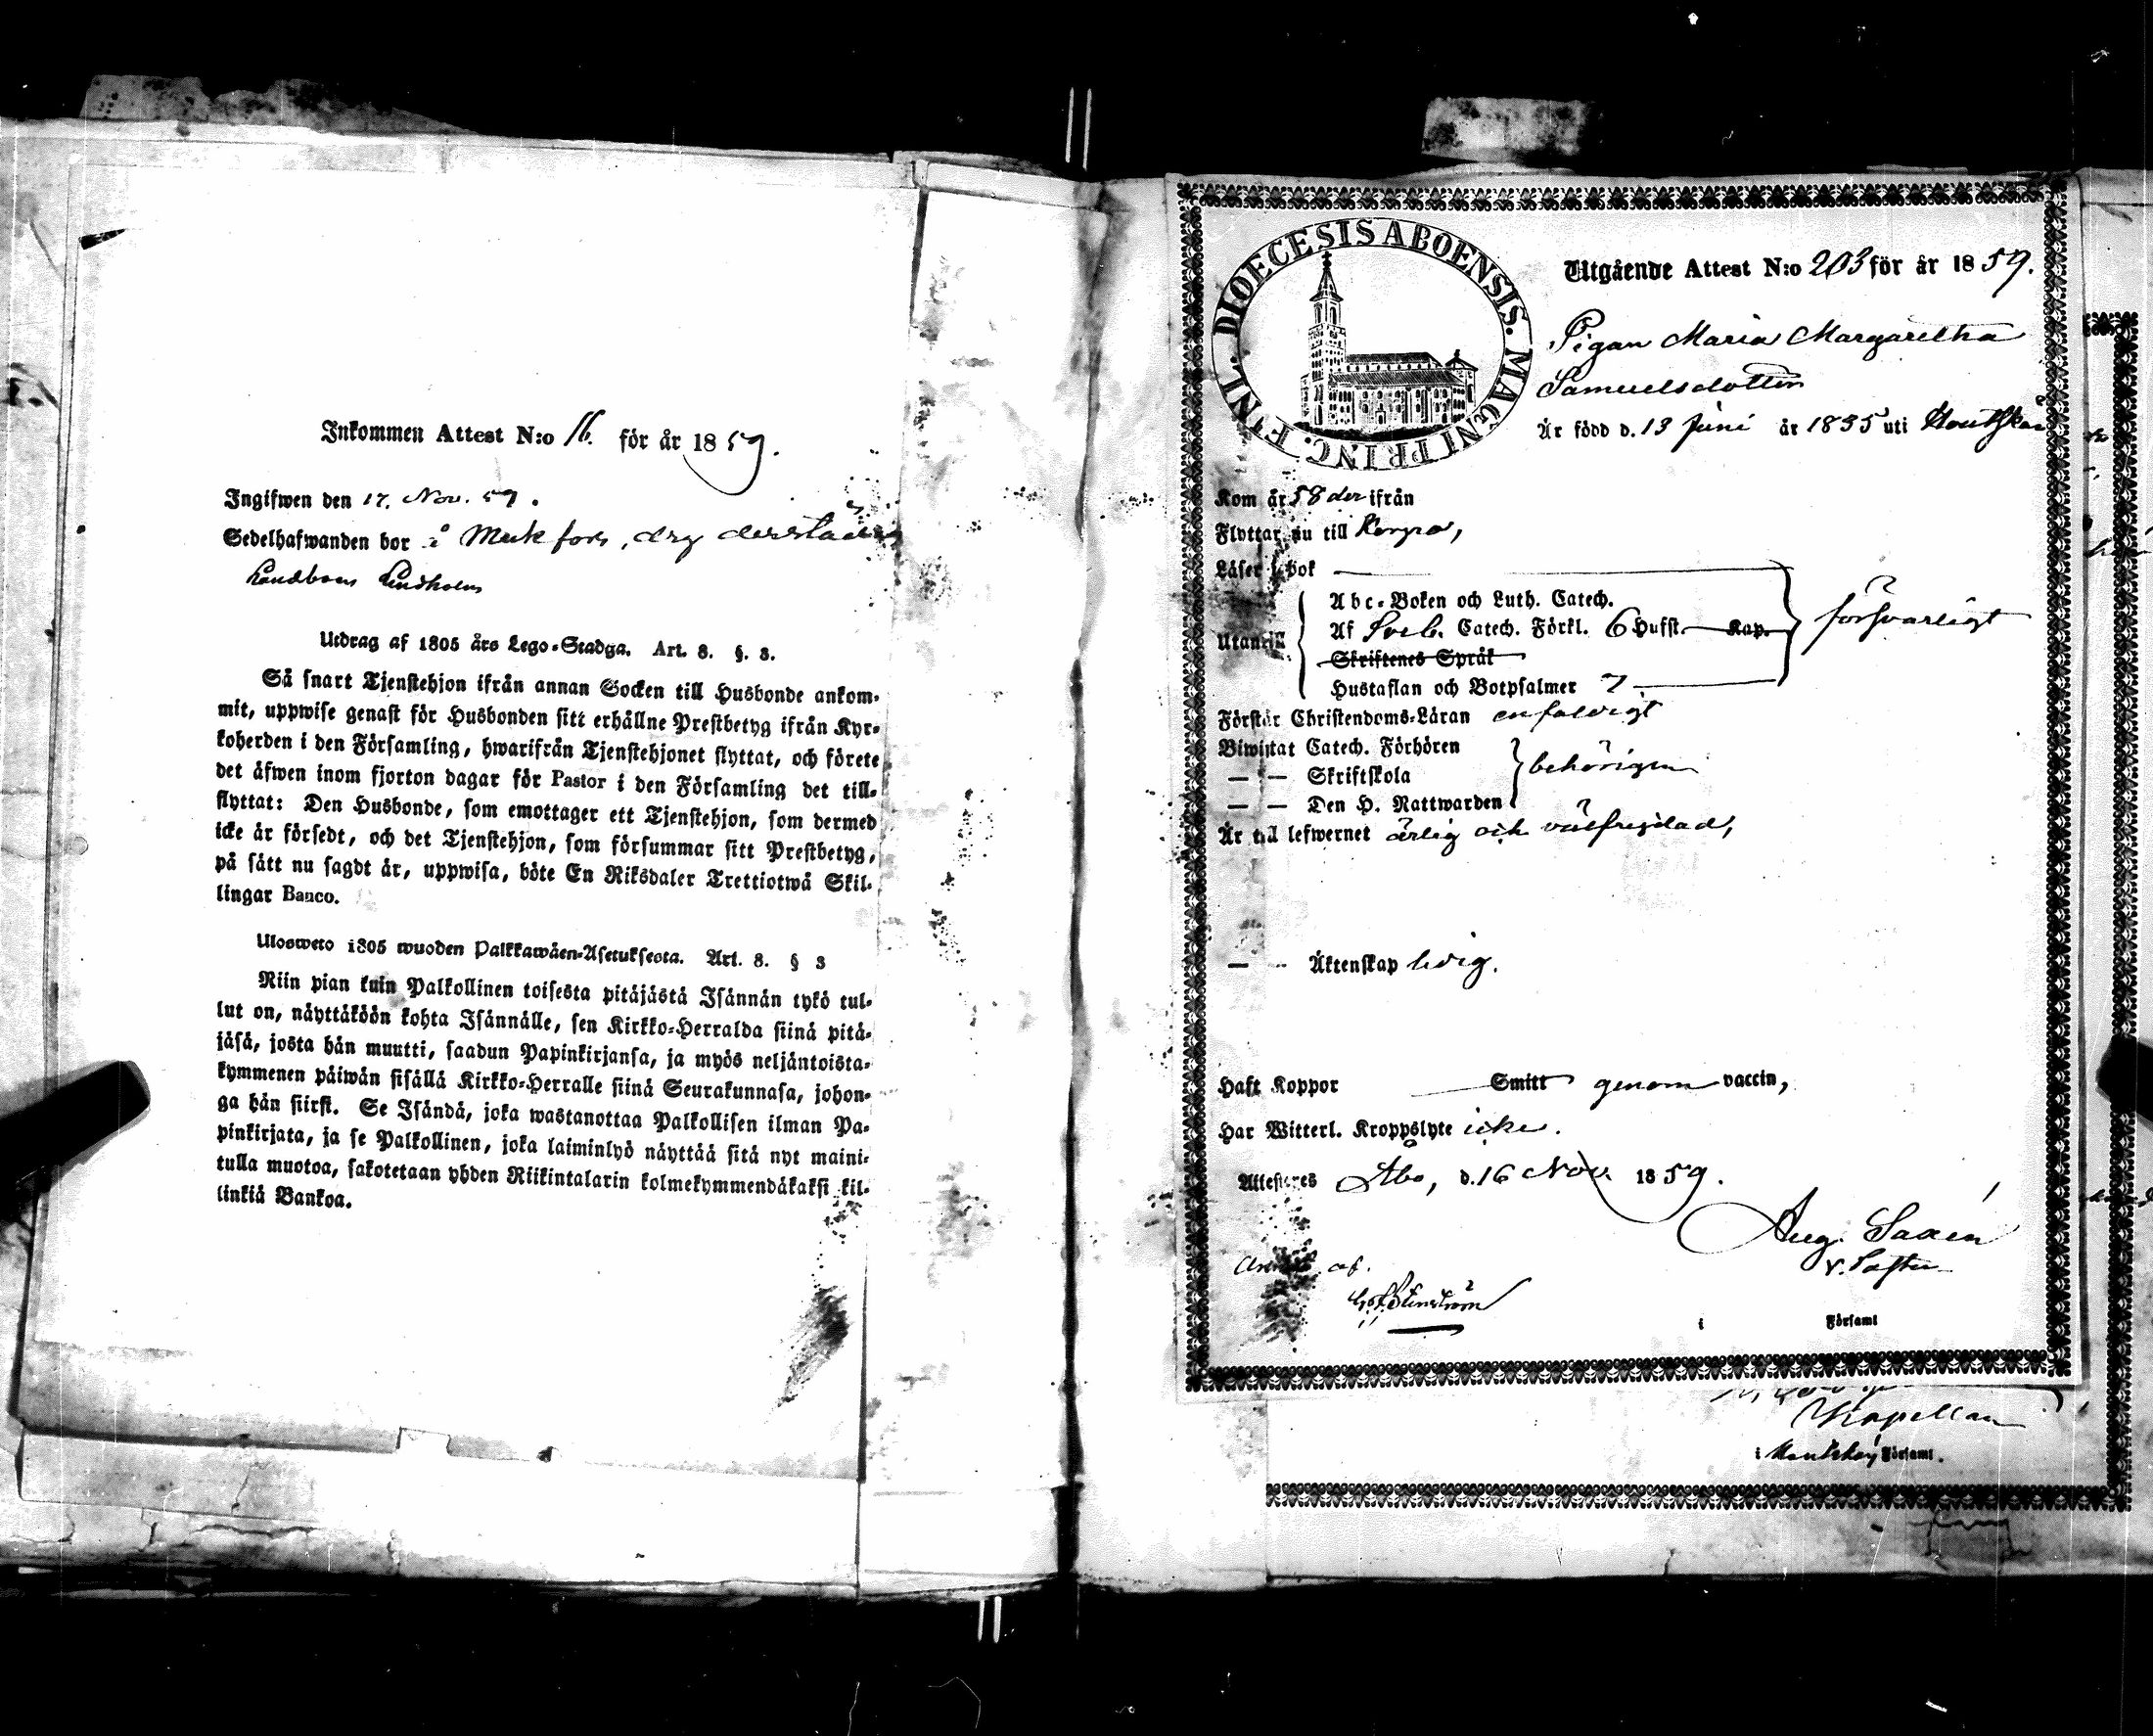 Inkommen Attest N:o 16. för år 1859.
Ingifwen den 17. Nov. 59.
Sedelhafwanden bor å
Utdrag af 1805 års Lego-Stadga. Art. 8. §. 3.
Så snart Tjenstehjon ifrån annan Socken till Husbonde ankom-
mit, uppwise genast för Husbonden sitt erhållne Prestbetyg ifrån Kyr-
koherden i den Församling, hwarifrån Tjenstehjonet flyttat, och förete
det äfwen inom fjorton dagar för Pastor i den Församling det till-
flyttat: Den Husbonde, som emottager ett Tjenstehjon, som dermed
icke är försedt, och det Tjenstehjon, som försummar sitt Prestbetyg,
på sätt nu sagdt är, uppwisa, böte En Riksdaler Trettiotwå Skil-
lingar Banco.
Ulosweto 1805 wuoden Palkkawäen-Asetuksesta. Art. 8. § 3
Niin pian kuin Palkollinen toisesta pitäjästä Isännän tykö tul-
lut on, näyttäköön kohta Isännälle, sen Kirkko-Herralda siinä pitä-
jäsä, josta hän muutti, saadun Papinkirjansa, ja myös neljäntoista-
kymmenen päiwän sisällä Kirkko-Herralle siinä Seurakunnasa, johon-
ga hän siirst. Se Isändä, joka wastanottaa Palkollisen ilman Pa-
pinkirjata, ja se Palkollinen, joka laiminlyö näyttää sitä nyt maini-
tulla muotoa, sakotetaan yhden Riikintalarin kolmekymmendäkaksi kil-
linkiä Bankoa.
FENL. DIOECESIS ABOENSIS. MAGNI PRINC.
Utgående Attest N:o 203 för år 1859.
Pigan Maria Margaretha
Samuelsdotter
Är född d. 13 Juni år 1835 uti Houtskär
Kom år 58 der ifrån
Flyttar nu till Korpo,
Läser i bok
Utantill
Abc-Boken och Luth. Catech.
Af Sveb. Catech. Förkl. 6 Hufst. Kap.
Skriftenes Språk
Hustaflan och Botpsalmer 7
försvarligt
Förstår Christendoms-Läran enfaldigt
Biwistat Catech. Förhören
— — Skriftskola
— — Den H. Nattwarden
behörigen
Är till lefwernet ärlig och välfrejdad,
— — Äktenskap ledig.
Haft Koppor Smitt genom vaccin,
Har Witterl. Kroppslyte icke.
Attesteres Åbo, d. 16 Nov. 1859.
Aug. Saxén
v. Pastor
af.
i Församl
Kapellan
i Houtskär Församl.